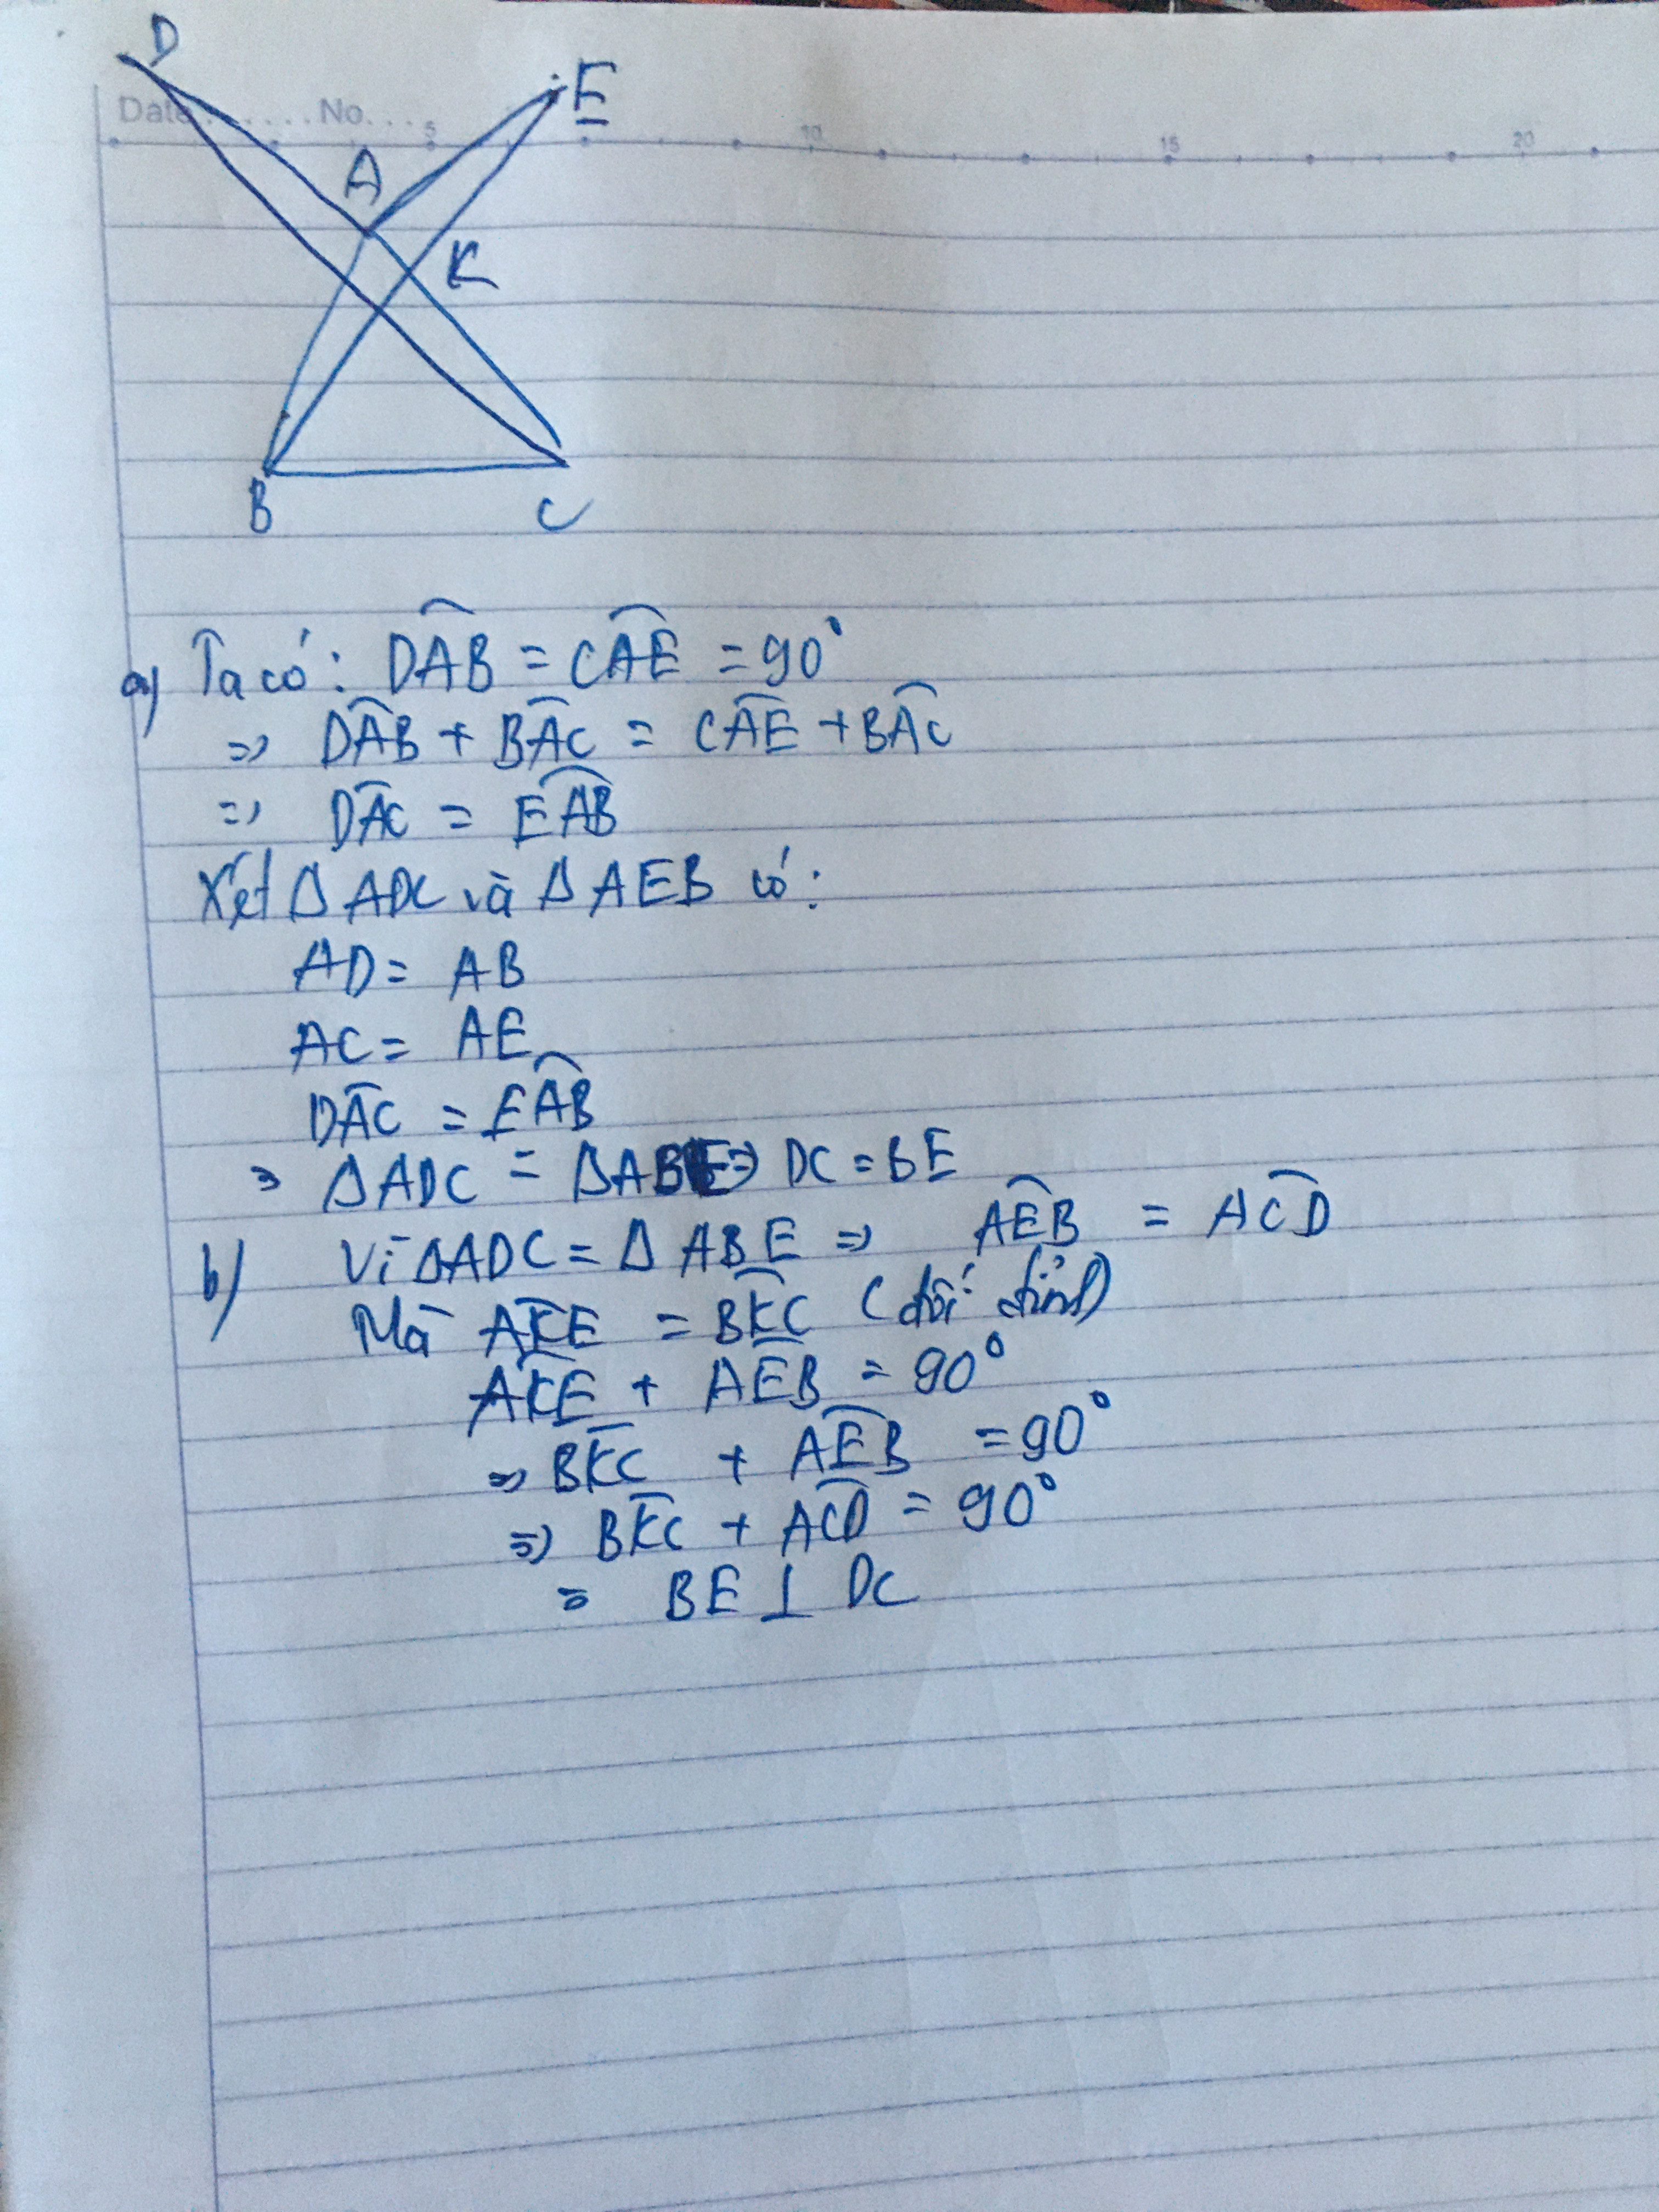 D
E
Date . . . . . . No. . . .
5 10 15 20
A
K
B C
a) Ta có: DÂB = CÂE = 90°
=> DÂB + BÂC = CÂE + BÂC
=> DÂC = EÂB
Xét Δ ADC và Δ AEB có:
AD = AB
AC = AE
DÂC = EÂB
=> ΔADC = ΔABE => DC = BE
b) Vì ΔADC = Δ ABE => AÊB = AĈD
Mà AK̂E = BK̂C (đối đỉnh)
AK̂E + AÊB = 90°
=> BK̂C + AÊB = 90°
=> BK̂C + AĈD = 90°
= BE ⊥ DC